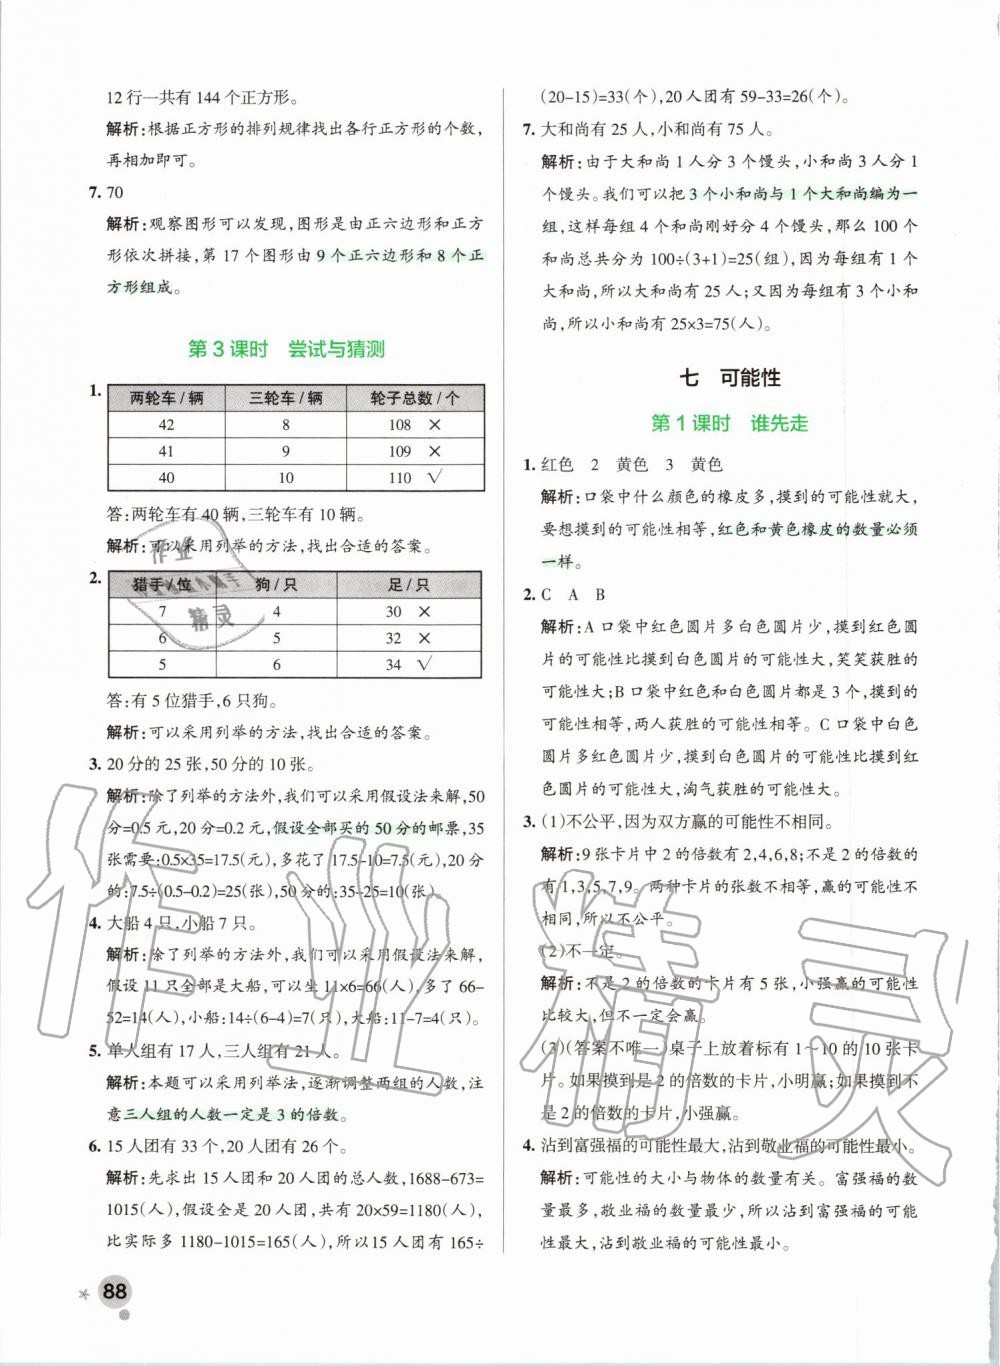 12 行一共有 144 个正方形。
解析:根据正方形的排列规律找出各行正方形的个数,
再相加即可。
7. 70
解析:观察图形可以发现,图形是由正六边形和正方
形依次拼接,第 17 个图形由 9 个正六边形和 8 个正
方形组成。
第 3 课时 尝试与猜测
1.
两轮车/辆 三轮车/辆 轮子总数/个
42 8 108 ×
41 9 109 ×
40 10 110 √
答:两轮车有 40 辆,三轮车有 10 辆。
解析:可以采用列举的方法,找出合适的答案。
2.
猎手/位 狗/只 足/只
7 4 30 ×
6 5 32 ×
5 6 34 √
答:有 5 位猎手,6 只狗。
解析:可以采用列举的方法,找出合适的答案。
3. 20 分的 25 张,50 分的 10 张。
解析:除了列举的方法外,我们可以采用假设法来解,50
分=0.5 元,20 分=0.2 元,假设全部买的 50 分的邮票,35
张需要:0.5×35=17.5(元),多花了 17.5-10=7.5(元),20 分
的:7.5÷(0.5-0.2)=25(张),50 分的:35-25=10(张)。
4. 大船 4 只,小船 7 只。
解析:除了列举的方法外,我们可以采用假设法来解,
假设 11 只全部是大船,可以坐 11×6=66(人),多了 66-
52=14(人),小船:14÷(6-4)=7(只),大船:11-7=4(只)。
5. 单人组有 17 人,三人组有 21 人。
解析:本题可以采用列举法,逐渐调整两组的人数,注
意三人组的人数一定是 3 的倍数。
6. 15 人团有 33 个,20 人团有 26 个。
解析:先求出 15 人团和 20 人团的总人数,1688-673=
1015(人),假设全是 20 人团,共有 20×59=1180(人),
比实际多 1180-1015=165(人),所以15 人团有 165÷
(20-15)=33(个),20 人团有 59-33=26(个)。
7. 大和尚有 25 人,小和尚有 75 人。
解析:由于大和尚 1 人分 3 个馒头,小和尚 3 人分 1
个馒头。我们可以把 3 个小和尚与 1 个大和尚编为一
组,这样每组 4 个和尚刚好分 4 个馒头,那么 100 个
和尚总共分为 100÷(3+1)=25(组),因为每组有 1 个
大和尚,所以大和尚有 25 人;又因为每组有 3 个小和
尚,所以小和尚有 25×3=75(人)。
七 可能性
第 1 课时 谁先走
1. 红色 2 黄色 3 黄色
解析:口袋中什么颜色的橡皮多,摸到的可能性就大,
要想摸到的可能性相等,红色和黄色橡皮的数量必须
一样。
2. C A B
解析:A 口袋中红色圆片多白色圆片少,摸到红色圆
片的可能性比摸到白色圆片的可能性大,笑笑获胜的
可能性大;B 口袋中红色和白色圆片都是 3 个,摸到的
可能性相等,两人获胜的可能性相等。C 口袋中白色
圆片多红色圆片少,摸到白色圆片的可能性比摸到红
色圆片的可能性大,淘气获胜的可能性大。
3. (1)不公平,因为双方赢的可能性不相同。
解析:9 张卡片中 2 的倍数有 2,4,6,8;不是 2 的倍数的
有 1,3,5,7,9。两种卡片的张数不相等,赢的可能性不
相同,所以不公平。
(2)不一定。
解析:不是 2 的倍数的卡片有 5 张,小强赢的可能性
比较大,但不一定会赢。
(3)(答案不唯一)桌子上放着标有 1~10 的 10 张卡
片。如果摸到是 2 的倍数的卡片,小明赢;如果摸到不
是 2 的倍数的卡片,小强赢。
4. 沾到富强福的可能性最大,沾到敬业福的可能性最小。
解析:可能性的大小与物体的数量有关。富强福的数
量最多,敬业福的数量最少,所以沾到富强福的可能
性最大,沾到敬业福的可能性最小。
88
作业精灵